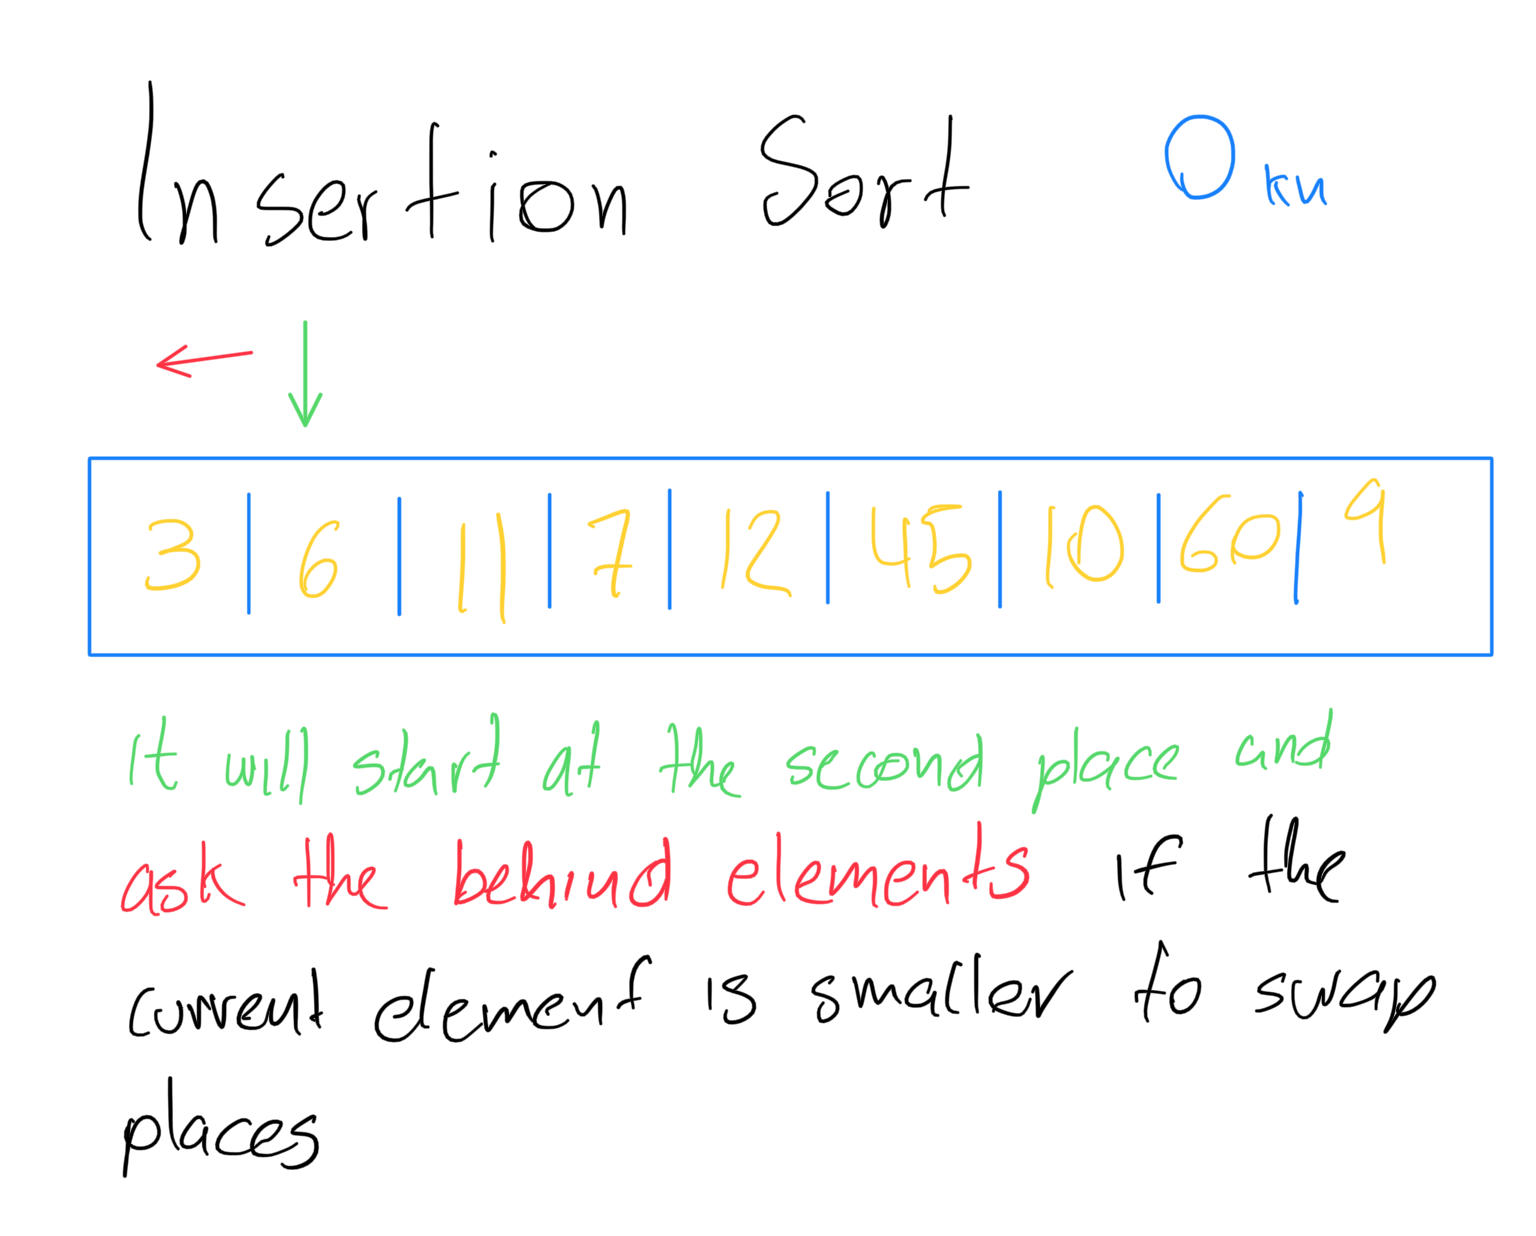 Insertion Sort O kn
3 | 6 | 11 | 7 | 12 | 45 | 10 | 60 | 9
it will start at the second place and
ask the behind elements if the
current element is smaller to swap
places